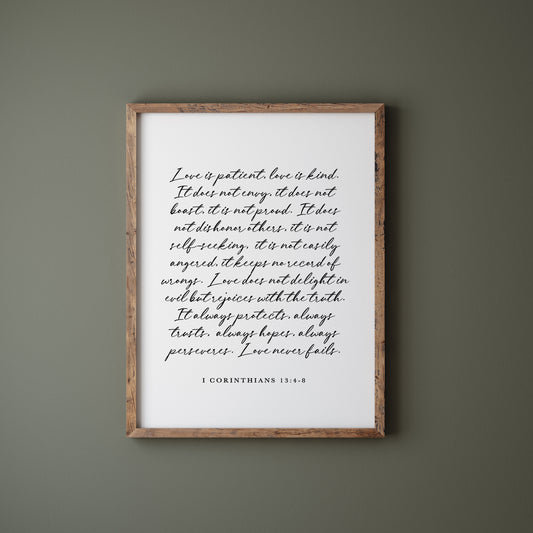 Love is patient, love is kind.
It does not envy, it does not
boast, it is not proud. It does
not dishonor others, it is not
self-seeking, it is not easily
angered, it keeps no record of
wrongs. Love does not delight in
evil but rejoices with the truth.
It always protects, always
trusts, always hopes, always
perseveres. Love never fails.
1 CORINTHIANS 13:4-8